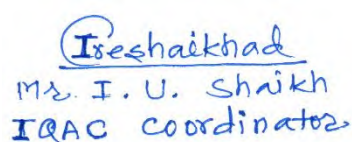 Ireshaikhad
Mr. I. U. Shaikh
IQAC Coordinator